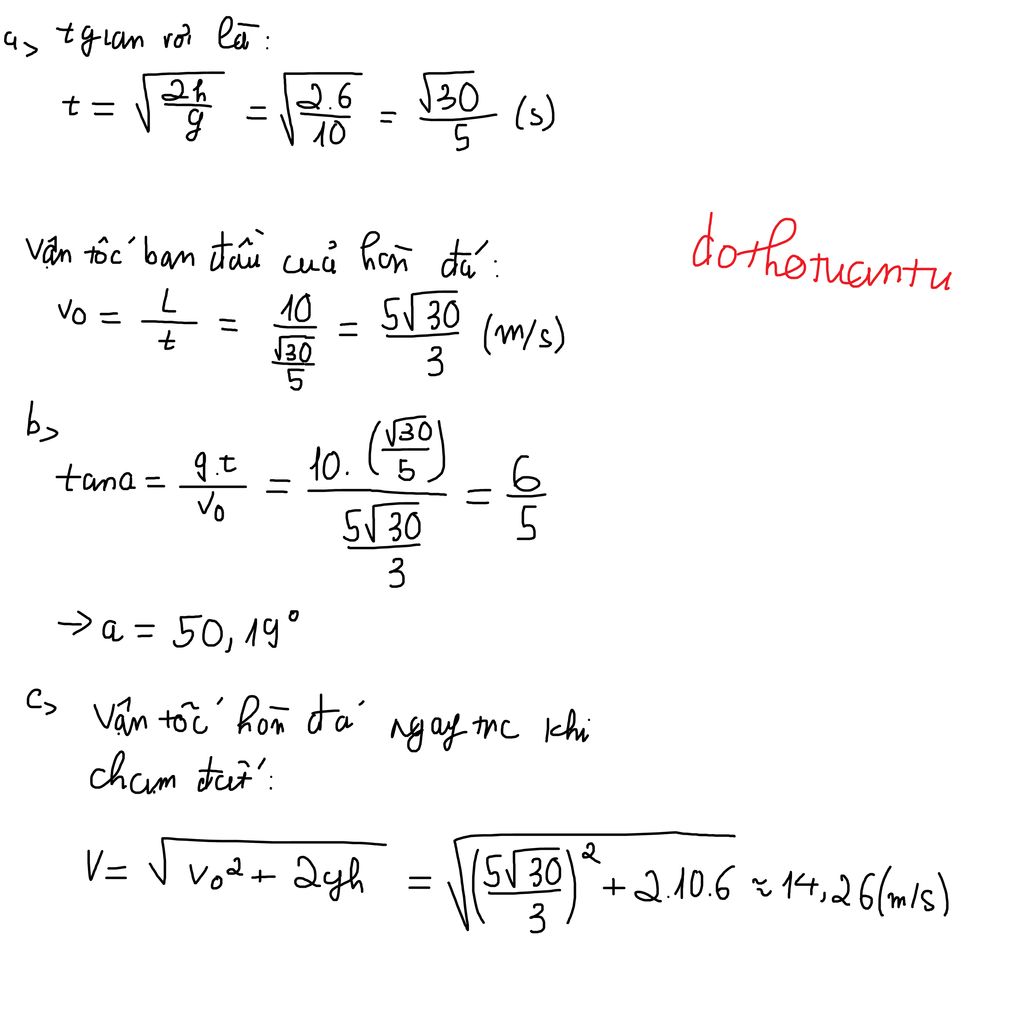 a> t gian rơi là:
t = √(2h/g) = √(2.6/10) = √30/5 (s)
Vận tốc ban đầu của hòn đá:
v0 = L/t = 10/(√30/5) = 5√30/3 (m/s)
dothotuantu
b>
tana = g.t/v0 = 10.(√30/5)/(5√30/3) = 6/5
→ a = 50,19°
c> Vận tốc hòn đá ngay trc khi
chạm đất:
V = √(v0² + 2gh) = √((5√30/3)² + 2.10.6) ≈ 14,26(m/s)